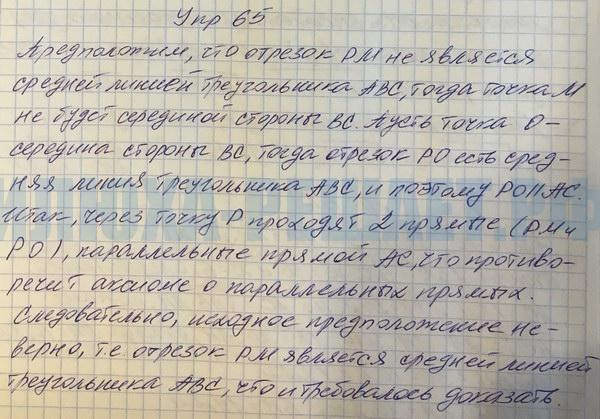 Упр 65
Предположим, что отрезок PM не является
средней линией треугольника ABC, тогда точка M
не будет серединой стороны BC. Пусть точка O-
середина стороны BC, тогда отрезок PO есть сред-
няя линия треугольника ABC, и поэтому PO||AC.
Итак, через точку P проходят 2 прямые (PM и
PO), параллельные прямой AC, что противо-
речит аксиоме о параллельных прямых.
Следовательно, исходное предположение не-
верно, т.е отрезок PM является средней линией
треугольника ABC, что и требовалось доказать.